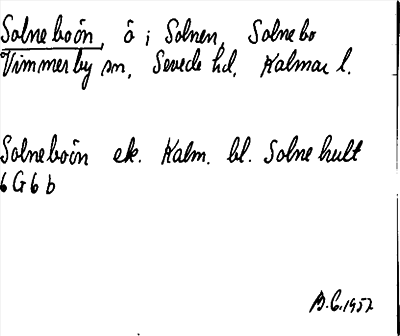 Solneboön, ö i Solnen, Solnebo
Vimmerby sn, Sevede hd, Kalmar l.
Solneboön ek. Kalm. bl. Solnehult
6G6b
B.C. 1957